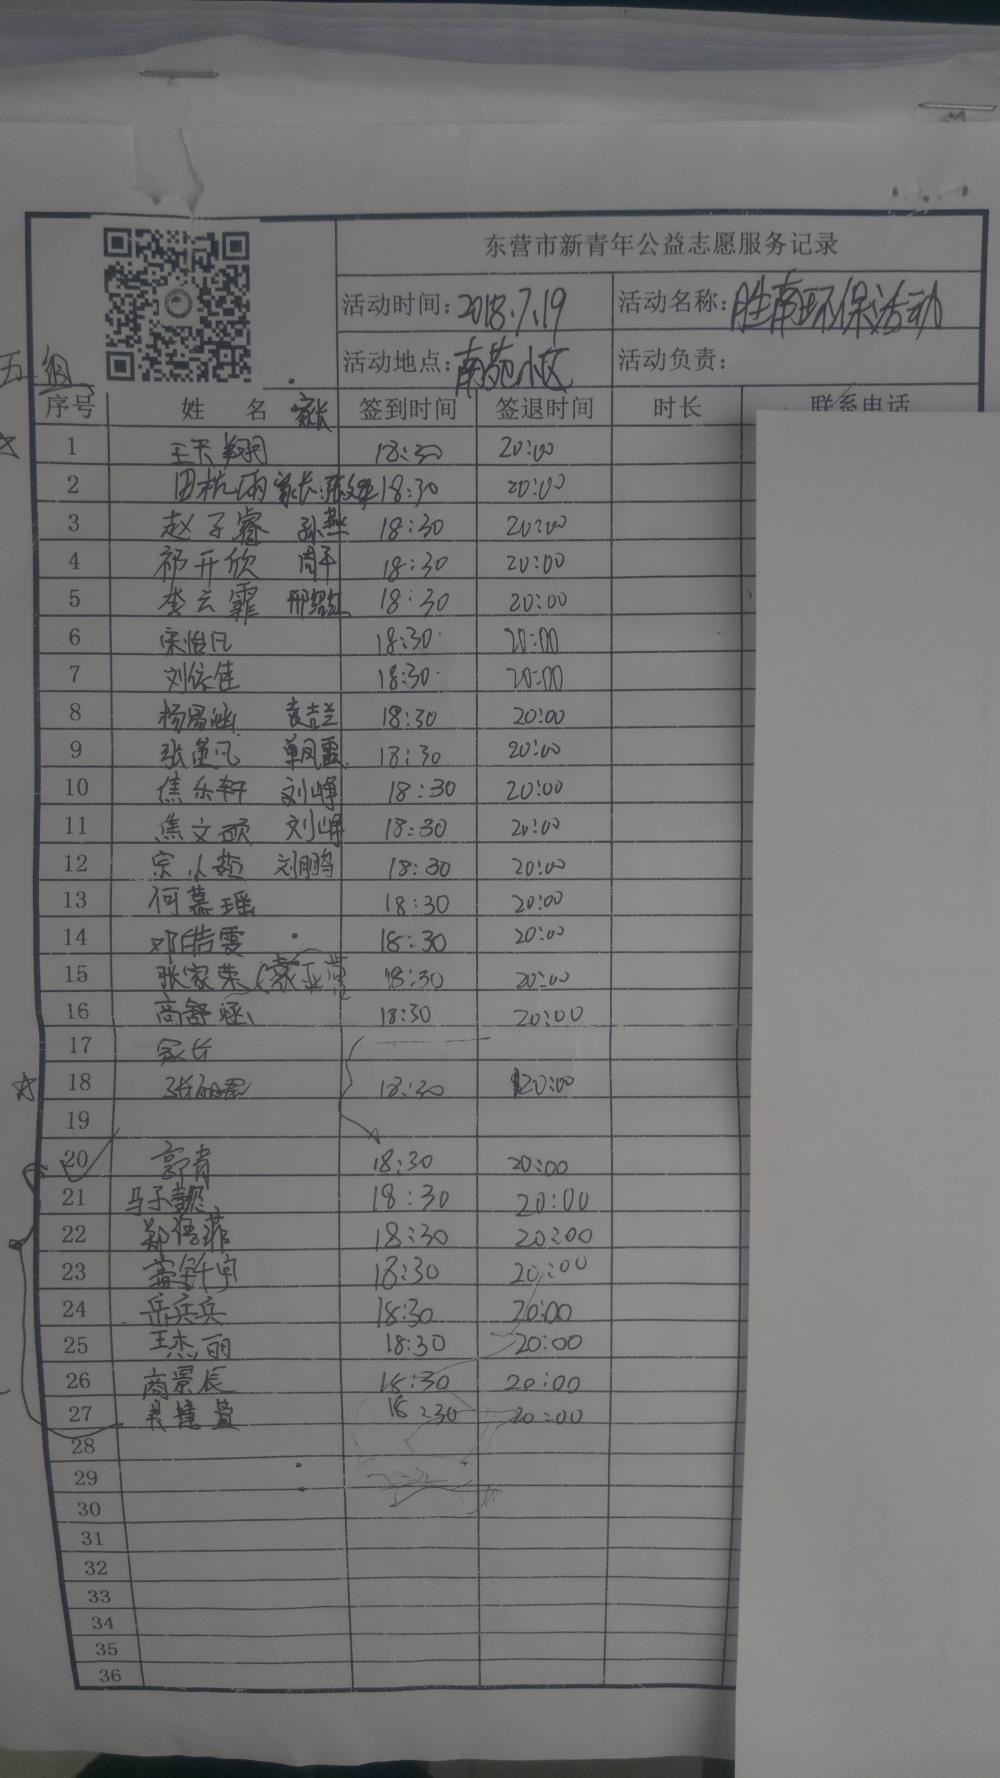 东营市新青年公益志愿服务记录
活动时间: 2018.7.19 活动名称: 胜南环保活动
五组 活动地点: 南苑小区 活动负责:
序号 姓 名 家长 签到时间 签退时间 时长 联系电话
1 王天翔 18:30 20:00
2 田杭雨 家长: 18:30 20:00
3 赵子睿 孙燕 18:30 20:00
4 祁开欣 周平 18:30 20:00
5 李云霏 邢 18:30 20:00
6 宋怡凡 18:30 20:00
7 刘依佳 18:30 20:00
8 杨 涵 袁吉兰 18:30 20:00
9 张 凡 单凤霞 18:30 20:00
10 焦乐轩 刘峥 18:30 20:00
11 焦文硕 刘峥 18:30 20:00
12 宗小 刘鹏 18:30 20:00
13 何慕瑶 18:30 20:00
14 邓皓雯 18:30 20:00
15 张家荣 18:30 20:00
16 高舒涵 18:30 20:00
17 家长
18 张 18:30 20:00
19
20 郭青 18:30 20:00
21 马子懿 18:30 20:00
22 郑语菲 18:30 20:00
23 宇 18:30 20:00
24 岳兵兵 18:30 20:00
25 王杰丽 18:30 20:00
26 商景辰 18:30 20:00
27 18:30 20:00
28
29
30
31
32
33
34
35
36